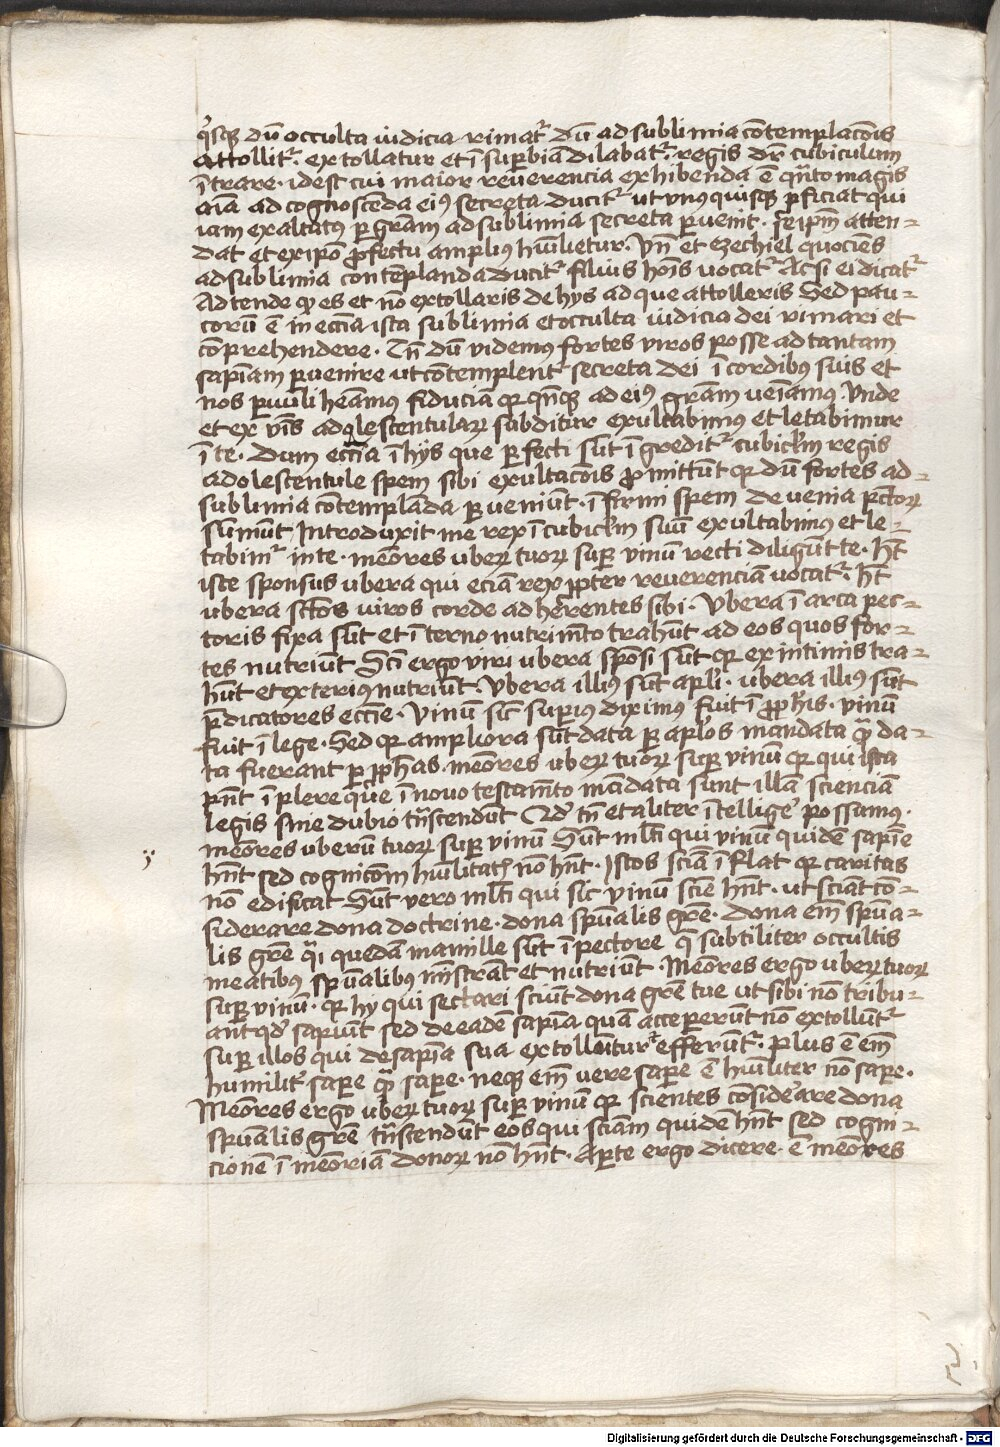 q̓sq̓ dū occulta iudicia rimat᷑ dū ad sublimia cōtemplacōis
attollit᷑. extollatur et ī suꝑbiā dilabat᷑. regis dr̄ cubiculum
ītrare. idest cui maior reuerencia exhibenda ē qn̄to magis
aīa ad cognoscēda eiꝰ secreta ducit᷑ ut vnusquisqꝫ ꝓficiat qui
iam exaltatꝰ ꝑ grām ad sublimia secreta ꝑuenit. seip̄m atten-
dat et ex ip̄o ꝓfectu ampliꝰ hūilietur. Vn̄ et ezechiel quociēs
ad sublimia contēplanda ducit᷑ filius hoīs uocat᷑ Ac si ei dicat᷑
Ad tende qͥ es et nō extollaris de hys ad que attolleris Sed pau-
corū ē in ecc̄ia ista sublimia et occulta iudicia dei rimari et
cōprehendere. Tn̄ dū videmꝰ fortes viros posse ad tantam
sapīam ꝑuenire ut cōtemplent᷑ secreta dei ī cordibꝰ suis et
nos ꝑuuli heāmus fiduciā qꝛ qn̄qꝫ ad eiꝰ grām ueīamꝰ. Vnde
et ex vīs adolescentularꝝ subditur exultabimus et letabimur
ī te. Dum ecc̄ia ī hys que ꝑfecti sūt īgredit᷑ cubick̄m regis
adolescentule spem sibi exultacōis ꝓmittūt qꝛ dū fortes ad-
sublimia cōtemplāda ꝑueniūt. īfirmi spem de uenia pctōrꝝ
sūmūt Introduxit me rex ī cubick̄m suū exultabimꝰ et le-
tabim᷑ in te. meōres uberꝝ tuorꝝ suꝑ vinū recti diligūt te. hꝫt
iste sponsus ubera qui eciā rex ꝓpter reuerenciā uocat᷑. hꝫt
ubera sctōs viros corde adherentes sibi. Vbera ī arca pec-
toris fixa sūt et īterno nutrimēto trahūt ad eos quos for-
tes nutriūt Scī ergo viri ubera spōsi sūt qꝛ ex intimis tra-
hūt et exteriꝰ nutriūt. Vbera illiꝰ sūt apl̄i. ubera illiꝰ sūt
p̄dicatores eccīe. Vinū sic̄ suꝑius diximus fuit ī ꝓph̄is. vinū
fuit ī lege. Sed qꝛ ampliora sūt data ꝑ apl̄os mandata qͣ da-
ta fuerant ꝑ ꝓph̄as. meōres uberꝝ tuorꝝ suꝑ vinū qꝛ qui ista
pn̄t īplere que ī nouo testamēto mādata sunt illā scienciā
legis sine dubio tn̄scendūt Qd̓ tn̄ et aliter ītellige᷑ possumꝰ.
meōres uberū tuorꝝ suꝑ vinū Sūt ml̄ti qui vinū quidē sapīe
hn̄t sed cognicōm hūilitatꝭ nō hn̄t. Istos scīa īflat qꝛ caritas
nō edificat Sūt vero ml̄ti qui sic vinū scīe hn̄t. ut sciāt cō-
siderare dona doctrine. dona spūalis grē. dona em̄ spūa-
lis grē qͣi quedā mamille sūt ī pectore q̄ subtiliter occultis
meatibꝰ spūalibꝰ mīstrāt et nutriūt. Meōres ergo uberꝝ tuorꝝ
suꝑ vinū. qꝛ hy qui sectari sciūt dona grē tue ut sibi nō tribu-
ant qd̓ sapiūt sed de eadē sapīa quā acceꝑerūt nō extollūt᷑
suꝑ illos qui de sapīa sua extollūtur efferūt᷑. Plus ē em̄
humilit᷑ saꝑe qͣ saꝑe. neqꝫ em̄ vere saꝑe ē hūiliter nō saꝑe.
Meōres ergo uberꝝ tuorꝝ suꝑ vinū qꝛ scientes cōside᷑are dona
spūalis grē tn̄scendūt eos qui scīam quidē hn̄t sed cogni-
cionē ī meōriā donorꝝ nō hn̄t. Aꝑte ergo dicere. ē meōres
Digitalisierung gefördert durch die Deutsche Forschungsgemeinschaft - DFG